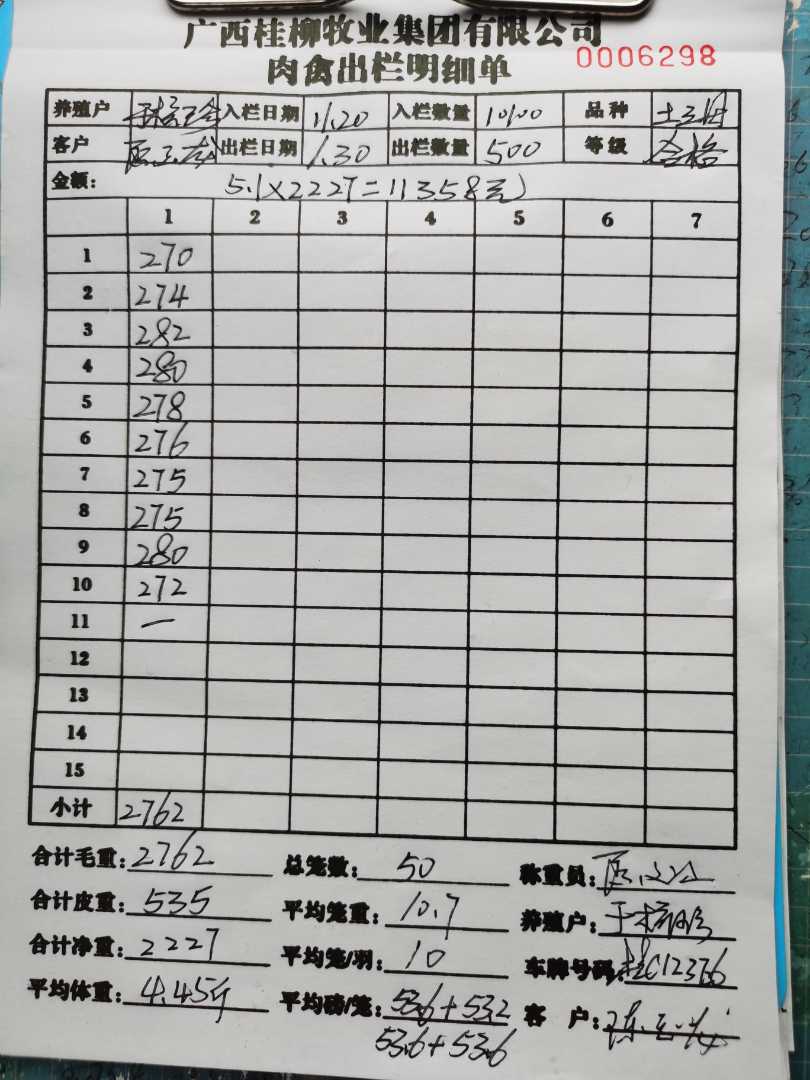 广西桂柳牧业集团有限公司
肉禽出栏明细单 0006298
养殖户 入栏日期 11.20 入栏数量 10100 品种
客户 出栏日期 1.30 出栏数量 500 等级 合格
金额: 5.1×2227=11358元
1 2 3 4 5 6 7
1 270
2 274
3 282
4 280
5 278
6 276
7 275
8 275
9 280
10 272
11 一
12
13
14
15
小计 2762
合计毛重: 2762 总笼数: 50 称重员:
合计皮重: 535 平均笼重: 10.7 养殖户:
合计净重: 2227 平均笼/羽: 10 车牌号码: 桂C12376
平均体重: 4.45斤 平均磅/笼: 53.6+53.2 客 户:
53.6+53.6